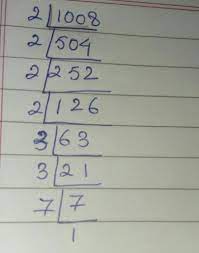 2 1008
2 504
2 252
2 126
3 63
3 21
7 7
1